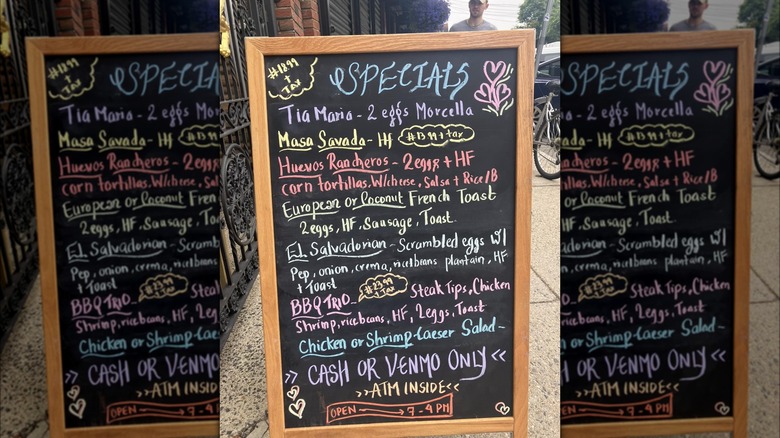 #18⁹⁹ + TAX
SPECIALS
Tia Maria - 2 eggs Morcella
Masa Savada - HF #13⁹⁹ + tax
Huevos Rancheros - 2 eggs + HF
corn tortillas. W/cheese, Salsa + Rice/B
European or Coconut French Toast
2 eggs, HF, Sausage, Toast.
El Salvadorian - Scrambled eggs W/
Pep, onion, crema, rice/beans plantain, HF
+ Toast
BBQ TRIO Steak Tips, Chicken
Shrimp, rice/beans, HF, 2 eggs, Toast
Chicken or Shrimp-Caeser Salad -
<< CASH OR VENMO ONLY >>
ATM INSIDE
OPEN 7 - 4 PM